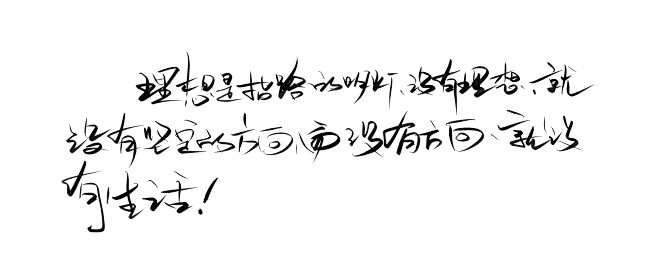 理想是指路的明灯、没有理想、就
没有坚定的方向、而没有方向、就没
有生活！